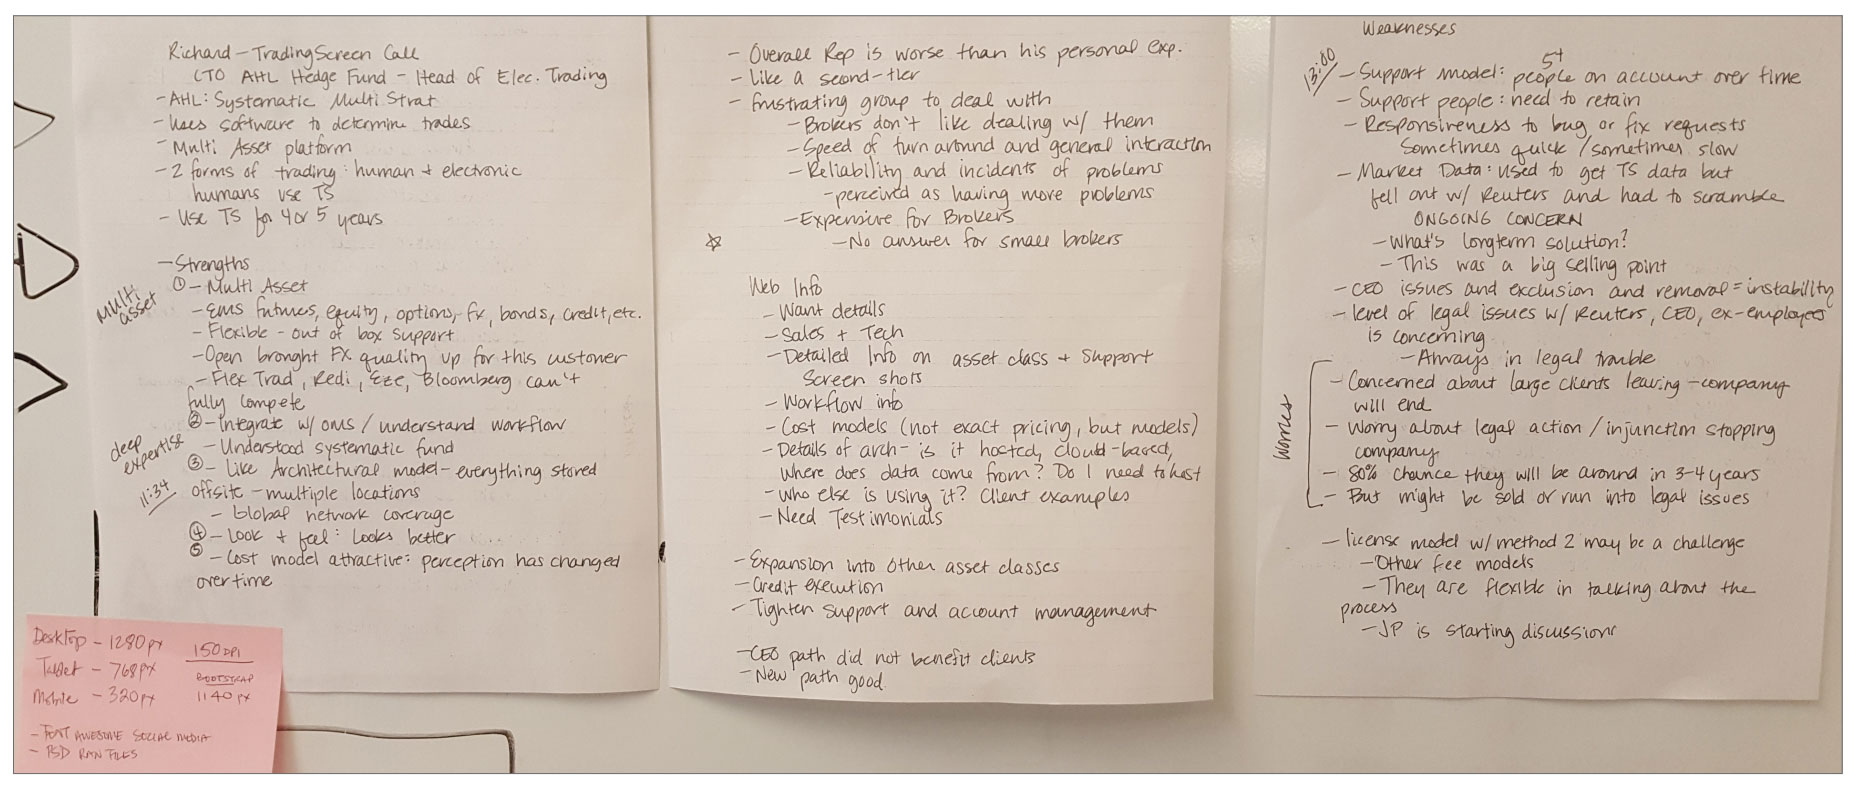 Richard - TradingScreen Call
CTO AHL Hedge Fund - Head of Elec. Trading
- AHL: Systematic Multi Strat
- Uses software to determine trades
- Multi Asset platform
- 2 forms of trading: human + electronic
humans use TS
- Use TS for 4 or 5 years
- Strengths
Multi
asset
① - Multi Asset
- EMS futures, equity, options, fx, bonds, credit, etc.
- Flexible - out of box support
- Open brought FX quality up for this customer
- Flex Trad, Redi, Eze, Bloomberg can't
fully compete
② - Integrate w/ OMS / understand workflow
deep
expertise
- Understood systematic fund
③ - Like Architectural model - everything stored
11:34
offsite - multiple locations
- Global network coverage
④ - Look + feel: Looks better
⑤ - Cost model attractive: perception has changed
over time
Desktop - 1280px
Tablet - 768px
Mobile - 320px
150 DPI
BOOTSTRAP
1140px
- FONT AWESOME SOCIAL MEDIA
- PSD RAW FILES
- Overall Rep is worse than his personal exp.
- Like a second-tier
- frustrating group to deal with
- Brokers don't like dealing w/ them
- Speed of turn around and general interaction
- Reliability and incidents of problems
- perceived as having more problems
- Expensive for Brokers
☆ - No answer for small brokers
Web Info
- Want details
- Sales + Tech
- Detailed Info on asset class + Support
Screen shots
- Workflow info
- Cost models (not exact pricing, but models)
- Details of arch - is it hosted, cloud-based,
Where does data come from? Do I need to host
- Who else is using it? Client examples
- Need Testimonials
- Expansion into other asset classes
- Credit execution
- Tighten support and account management
- CEO path did not benefit clients
- New path good
Weaknesses
13:00
5+
- Support model: people on account over time
- Support people: need to retain
- Responsiveness to bug or fix requests
Sometimes quick / sometimes slow
- Market Data: used to get TS data but
fell out w/ Reuters and had to scramble
ONGOING CONCERN
- What's longterm solution?
- This was a big selling point
- CEO issues and exclusion and removal = instability
- level of legal issues w/ Reuters, CEO, ex-employees
is concerning
- Always in legal trouble
Worries
- Concerned about large clients leaving - company
will end
- Worry about legal action / injunction stopping
company
- 80% chance they will be around in 3-4 years
- But might be sold or run into legal issues
- license model w/ method 2 may be a challenge
- Other fee models
- They are flexible in talking about the
process
- JP is starting discussions